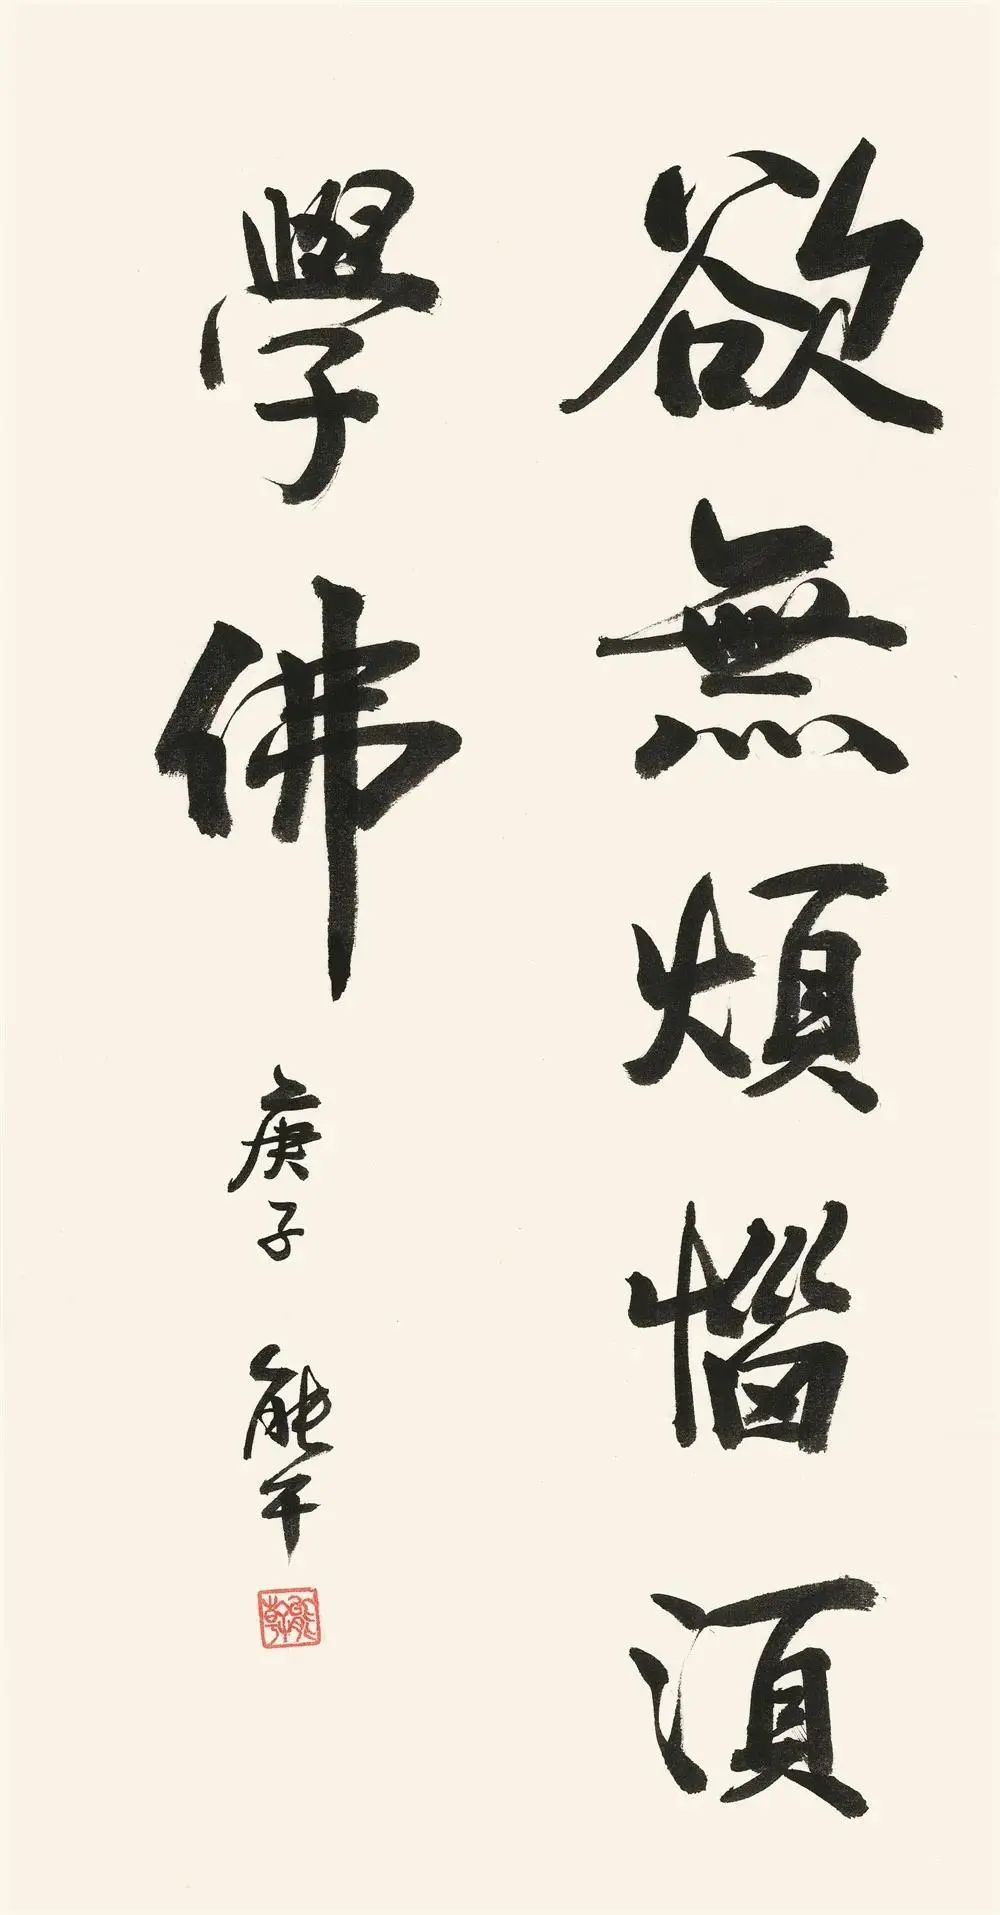 欲無煩惱須
學佛
庚子 能干